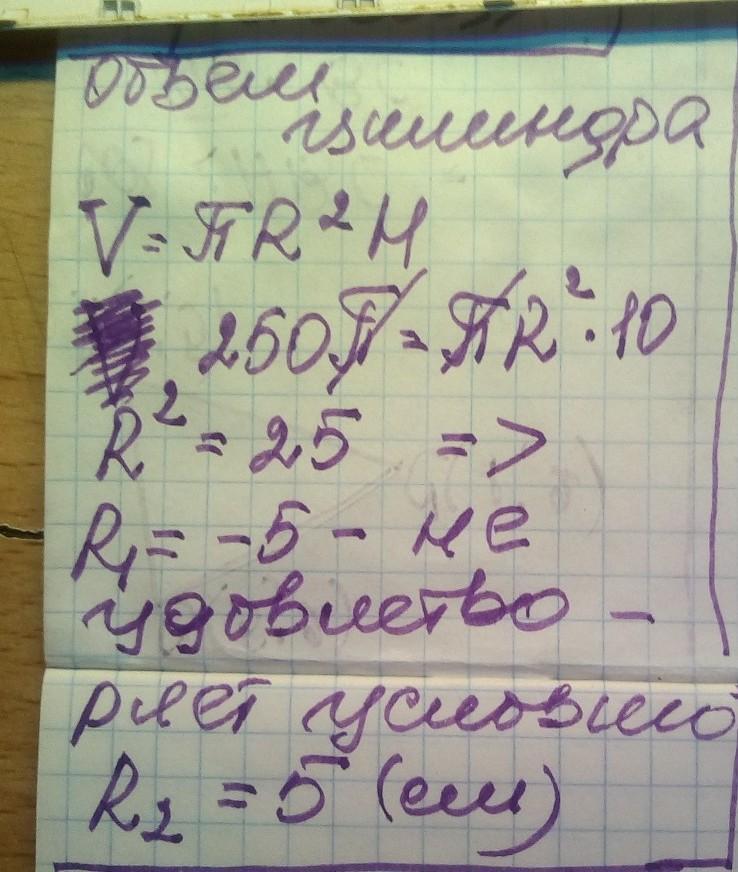 объем
цилиндра
V = πR²H
250π = πR² · 10
R² = 25 =>
R₁ = -5 - не
удовлетво -
ряет условию
R₂ = 5 (см)